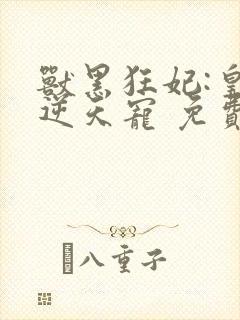 獸黑狂妃:皇
逆天寵 免費
八重子